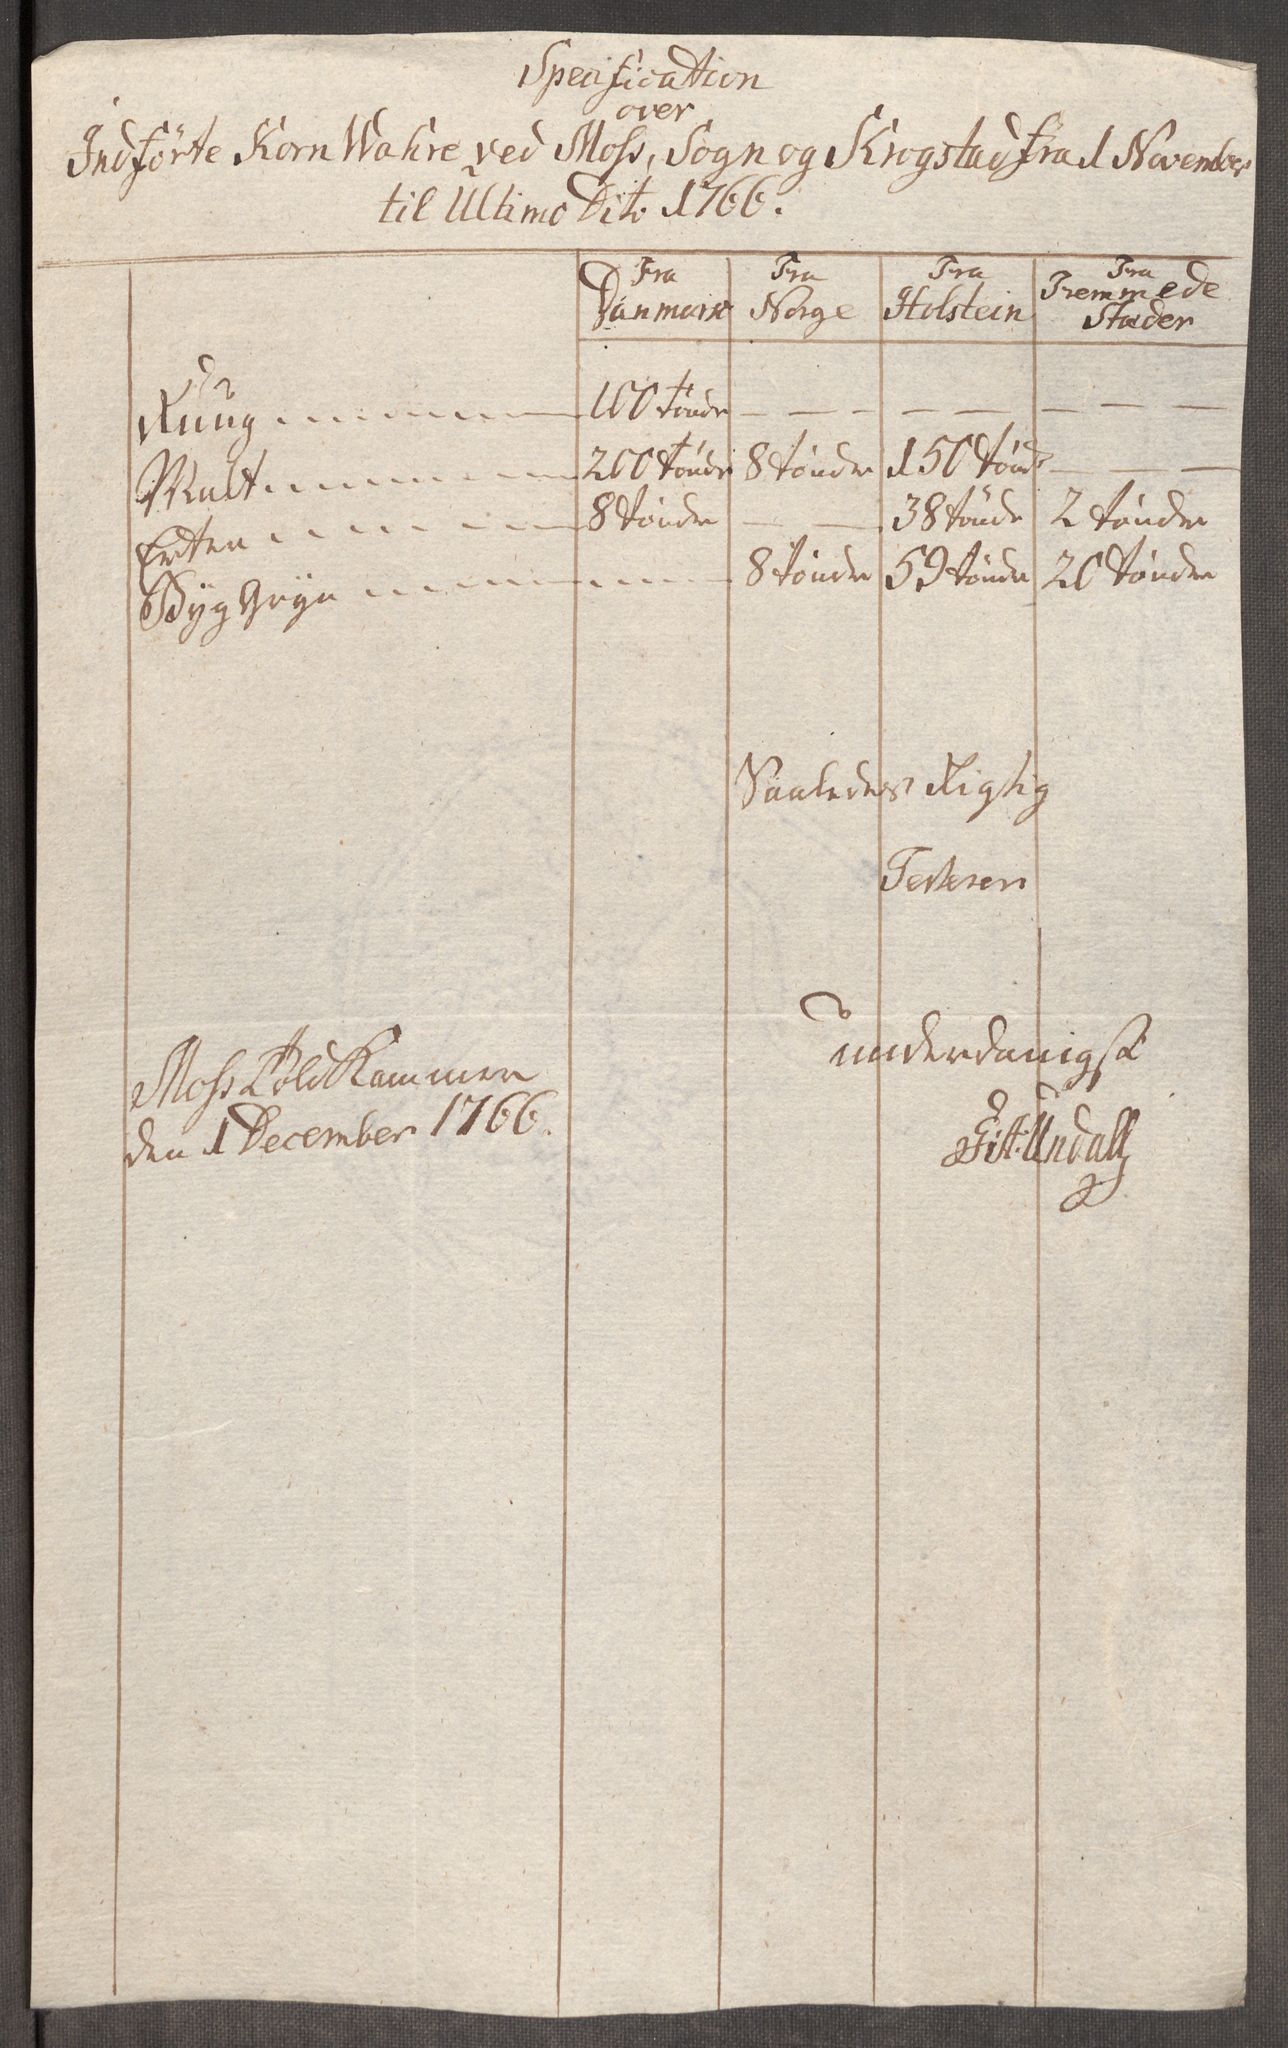 Specification
over
Indförte Korn Wahre ved Moss, Sogn og Krogstad fra 1 November
til Ultimo Dito 1766.
Fra Danmark Fra Norge Fra Holstein Fra Fremmede Stæder
Ruug 100 tönder — — — — — — —
Malt 200 tönder 8 tönder 150 tönd: — — —
Erter 8 tönder — — 38 tönde 2 tönder
Byg Gryn 8 tönder 59 tönder 20 tönder
Saaledes Rigtig
Testerer
underdanigst
Moss Told Kammer
den 1 December 1766.
Undall